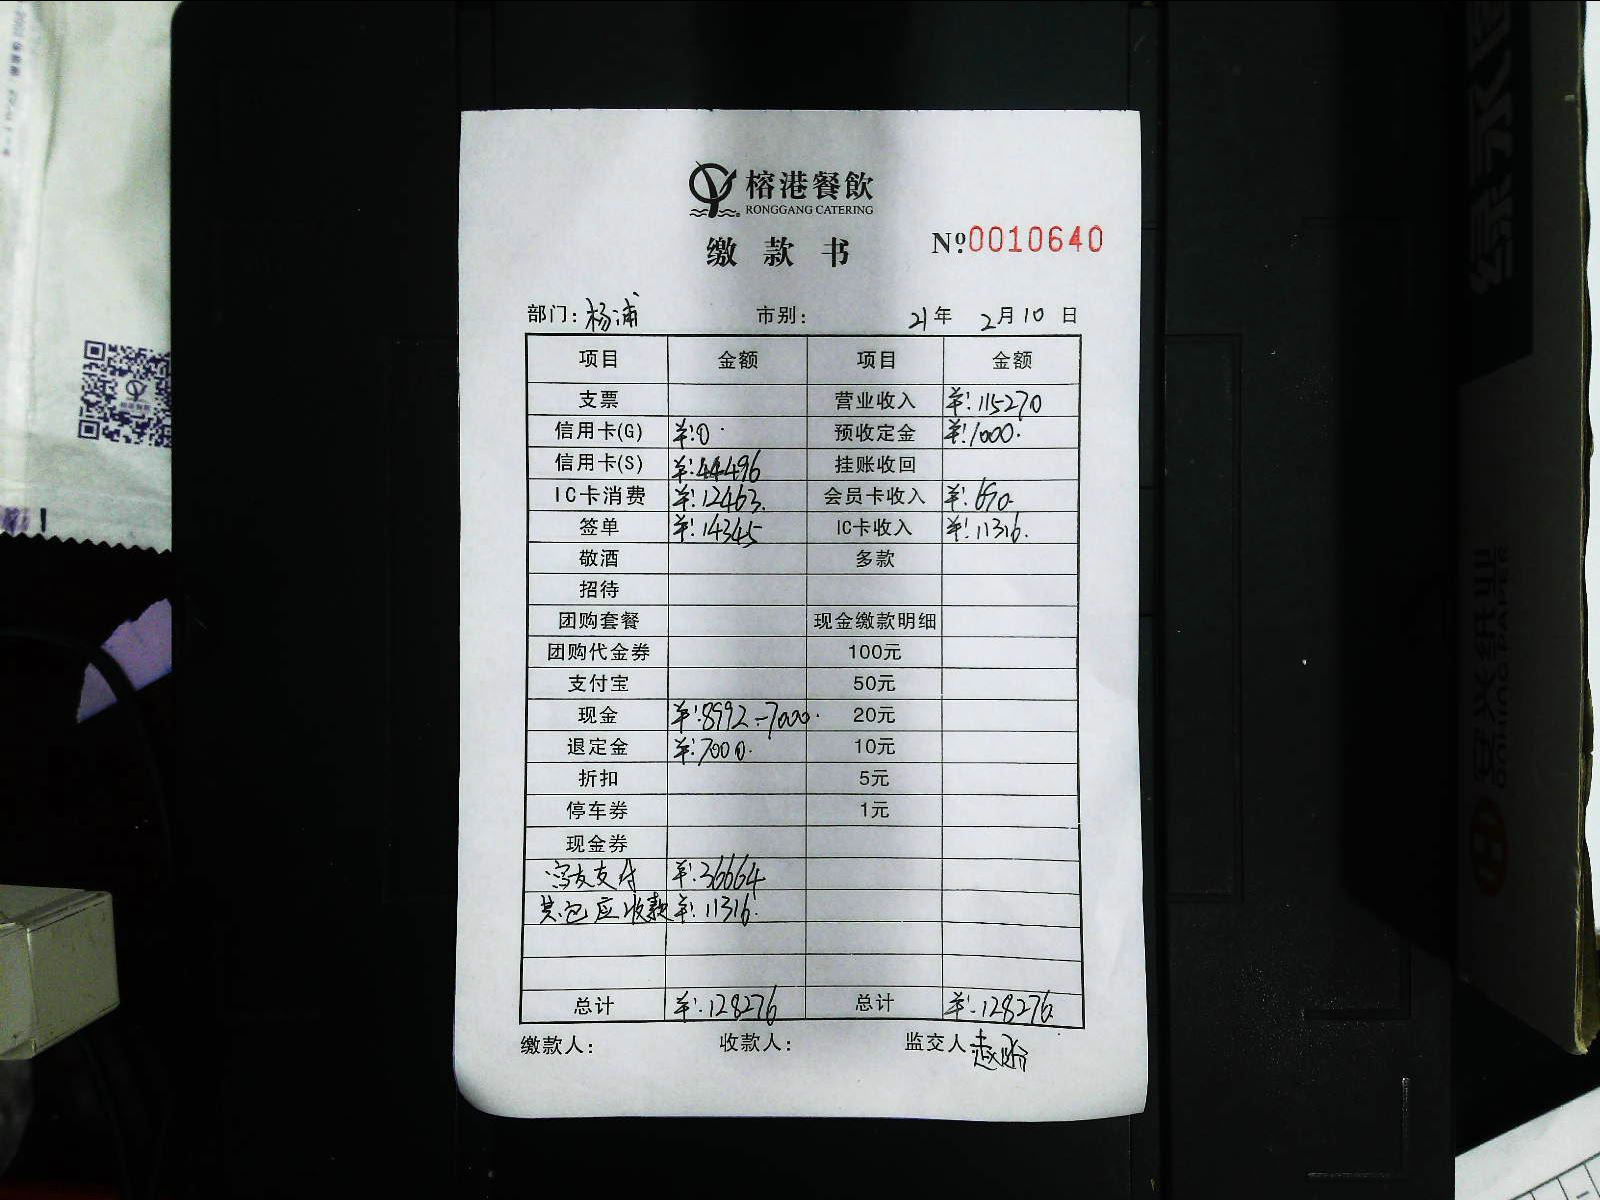 榕港餐飲
RONGGANG CATERING
缴款书 №0010640
部门：杨浦 市别： 21年 2月10日
项目 金额 项目 金额
支票 营业收入 ¥:115270
信用卡(G) ¥:0 预收定金 ¥:1000.
信用卡(S) ¥:44496 挂账收回
IC卡消费 ¥:12463. 会员卡收入 ¥:690
签单 ¥:14345 IC卡收入 ¥:11316.
敬酒 多款
招待
团购套餐 现金缴款明细
团购代金券 100元
支付宝 50元
现金 ¥:8992-7000. 20元
退定金 ¥:7000. 10元
折扣 5元
停车券 1元
现金券
支付 ¥:36664
其它应收款 ¥:11316.
总计 ¥:128276 总计 ¥:128276
缴款人： 收款人： 监交人